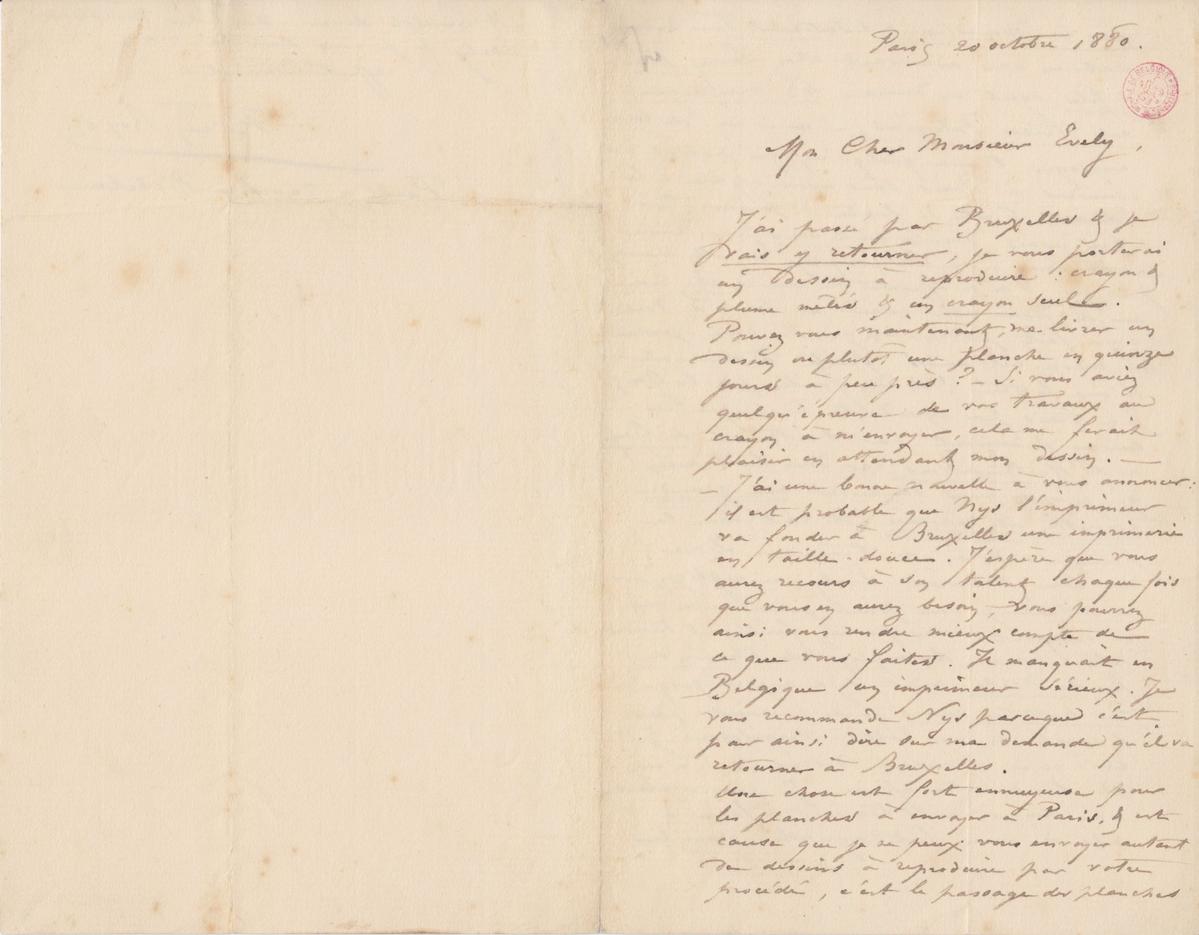 Paris 20 octobre 1880.
Mon Cher Monsieur Evely,
J'ai passé par Bruxelles & je
vais y retourner, je vous porterai
un dessin à reproduire : crayon &
plume mêlés & un crayon seul.
Pouvez vous maintenant, me livrer un
dessin ou plutôt une planche en quinze
jours à peu près ? – Si vous aviez
quelqu'épreuve de vos travaux au
crayon à m'envoyer, cela me ferait
plaisir en attendant mon dessin. —
– J'ai une bonne nouvelle à vous annoncer :
il est probable que Nys l'imprimeur
va fonder à Bruxelles une imprimerie
en taille-douce. J'espère que vous
aurez recours à son talent chaque fois
que vous en aurez besoin, vous pourrez
ainsi vous rendre mieux compte de
ce que vous faites. Il manquait en
Belgique un imprimeur sérieux. Je
vous recommande Nys parceque c'est
pour ainsi dire sur ma demande qu'il va
retourner à Bruxelles.
Une chose est fort ennuyeuse pour
les planches à envoyer à Paris, & est
cause que je ne peux vous envoyer autant
de dessins à reproduire par votre
procédé, c'est le passage des planches